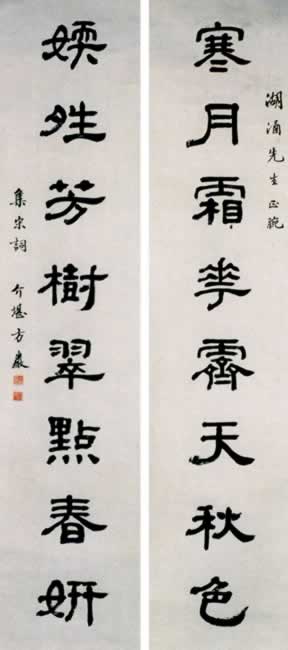 寒月霜華霽天秋色
湖涵先生正腕
媆夝芳樹翠點春妍
集宋詞 介堪方巖